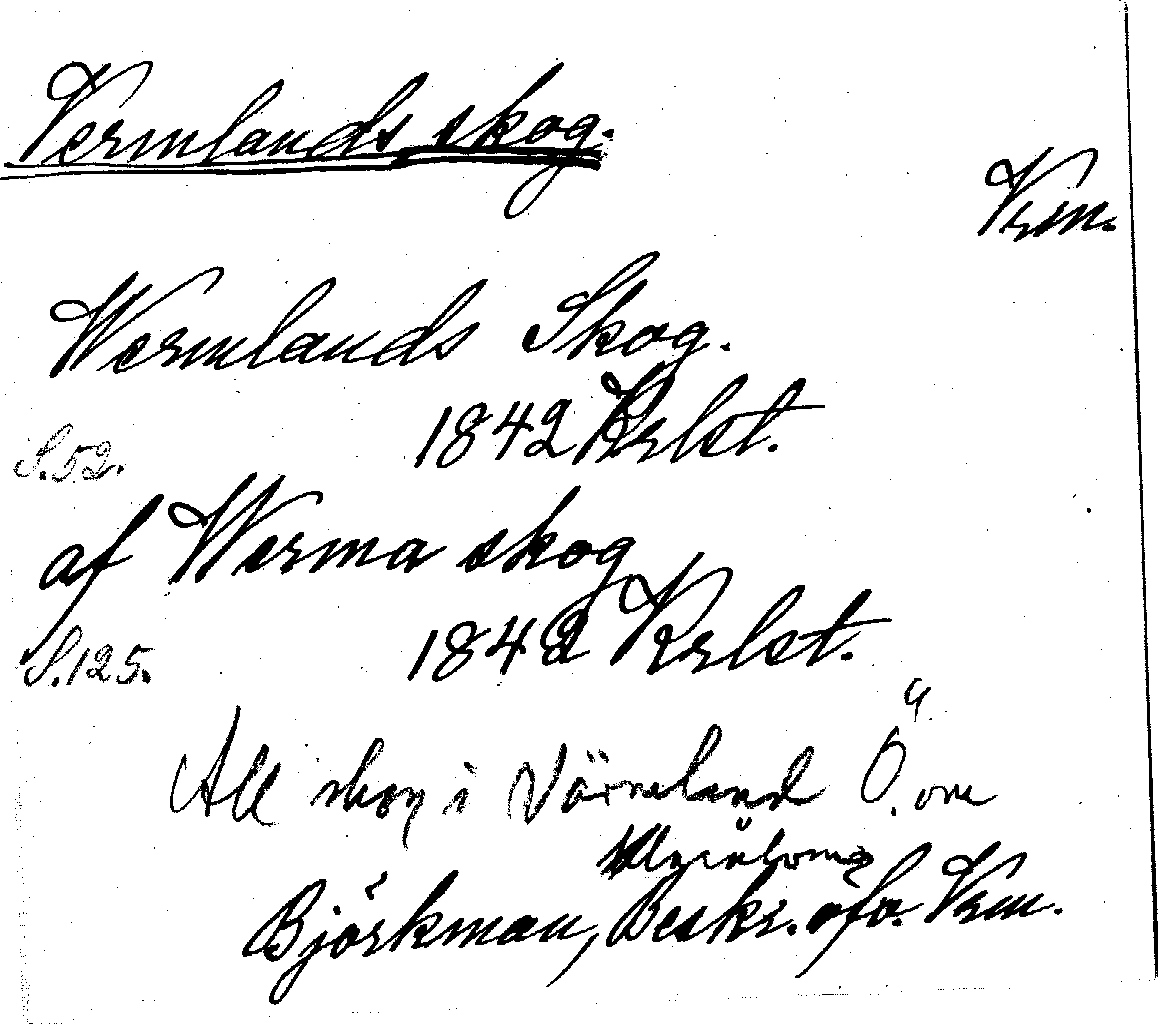 Vermlands skog.
Vrm.
Wermlands Skog.
1842 Krlst.
S.52.
af Werma skog
1842 Krlst.
S.125.
All skog i Värmland Ö. om
Björkman, Beskr. öfv. Vrm.